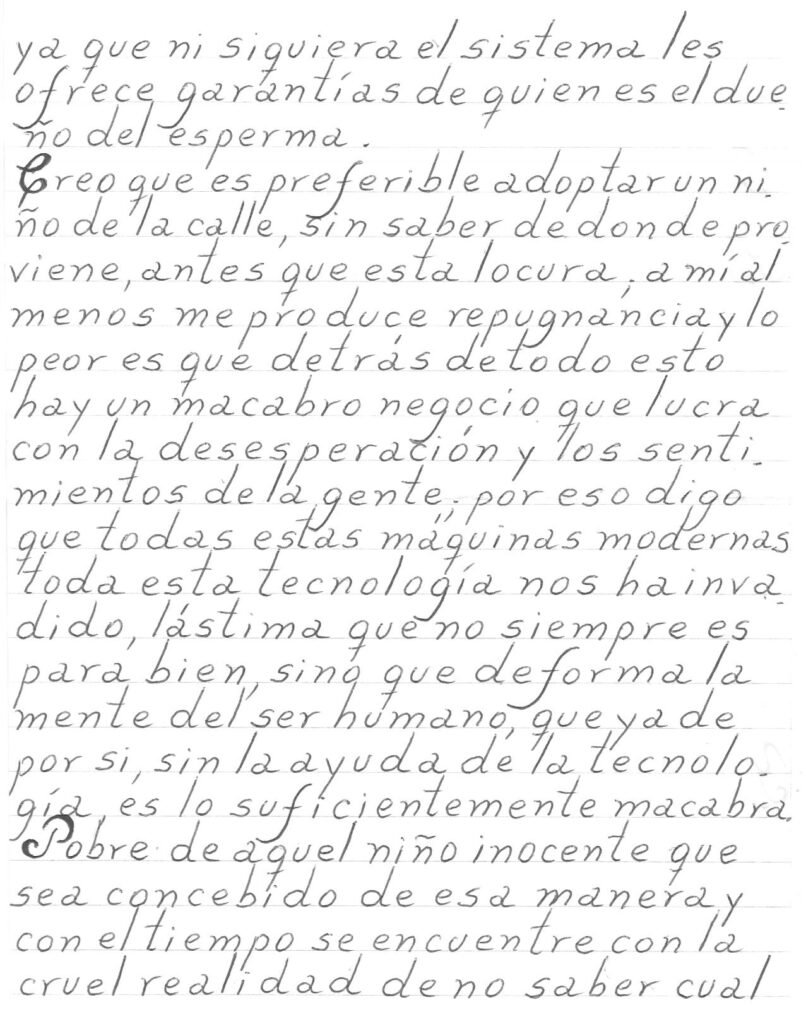 ya que ni siquiera el sistema les
ofrece garantías de quien es el due-
ño del esperma.
Creo que es preferible adoptar un ni-
ño de la calle, sin saber de donde pro-
viene, antes que esta locura; a mí al
menos me produce repugnancia y lo
peor es que detrás de todo esto
hay un macabro negocio que lucra
con la desesperación y los senti-
mientos de la gente; por eso digo
que todas estas máquinas modernas
toda esta tecnología nos ha inva-
dido, lástima que no siempre es
para bien, sino que deforma la
mente del ser humano, que ya de
por si, sin la ayuda de la tecnolo-
gía, es lo suficientemente macabra.
Pobre de aquel niño inocente que
sea concebido de esa manera y
con el tiempo se encuentre con la
cruel realidad de no saber cual